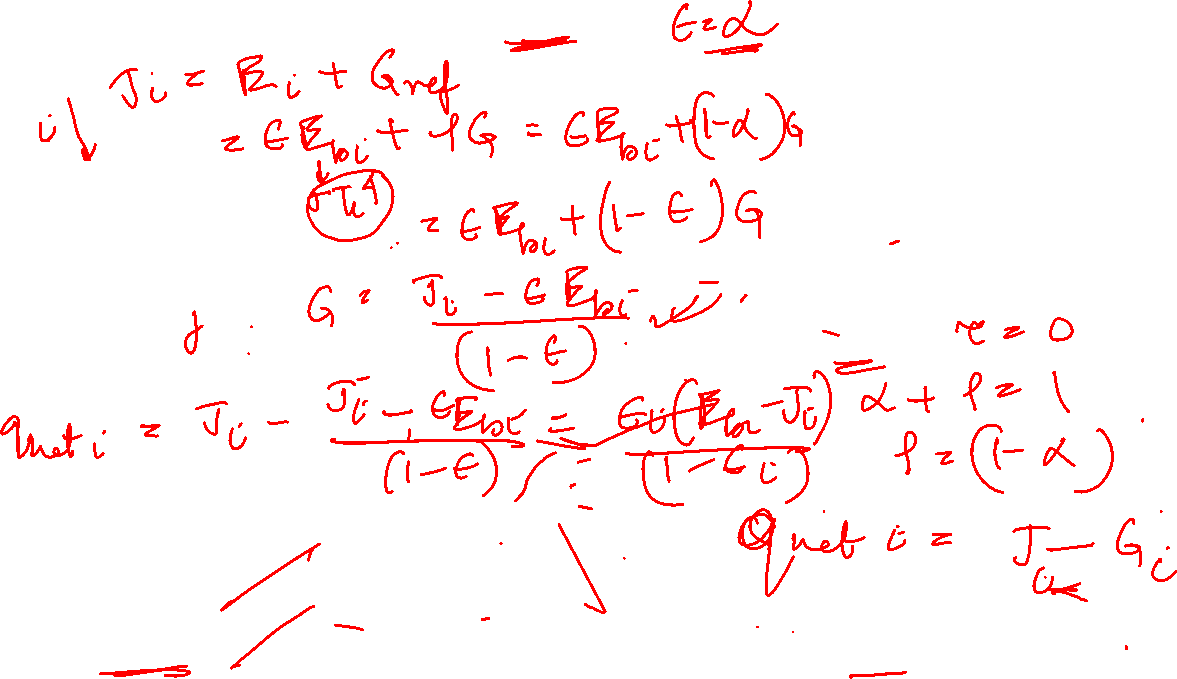 ϵ = α
i J_i = E_i + G_ref
= ϵ E_bi + ρG = ϵ E_bi + (1-α)G
σT_i^4
= ϵ E_bi + (1 - ϵ)G
G = (J_i - ϵ E_bi) / (1 - ϵ)
τ = 0
α + ρ = 1
ρ = (1-α)
q_net i = J_i - (J_i - ϵE_bi) / (1-ϵ) = ϵ_i(E_bi - J_i) / (1 - ϵ_i)
q_net i = J_i - G_i